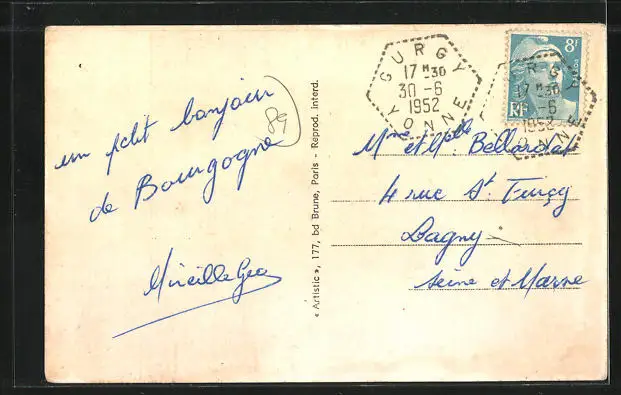 un petit bonjour
de Bourgogne
89
Mireille Geo
« Artistic », 177, bd Brune, Paris - Reprod. interd.
GURGY
17 H 30
30 -6
1952
YONNE
8F
RF
GURGY
17 H 30
-6
1952
YONNE
Mme et Mlle
4 rue St. Furcy
Lagny
Seine et Marne